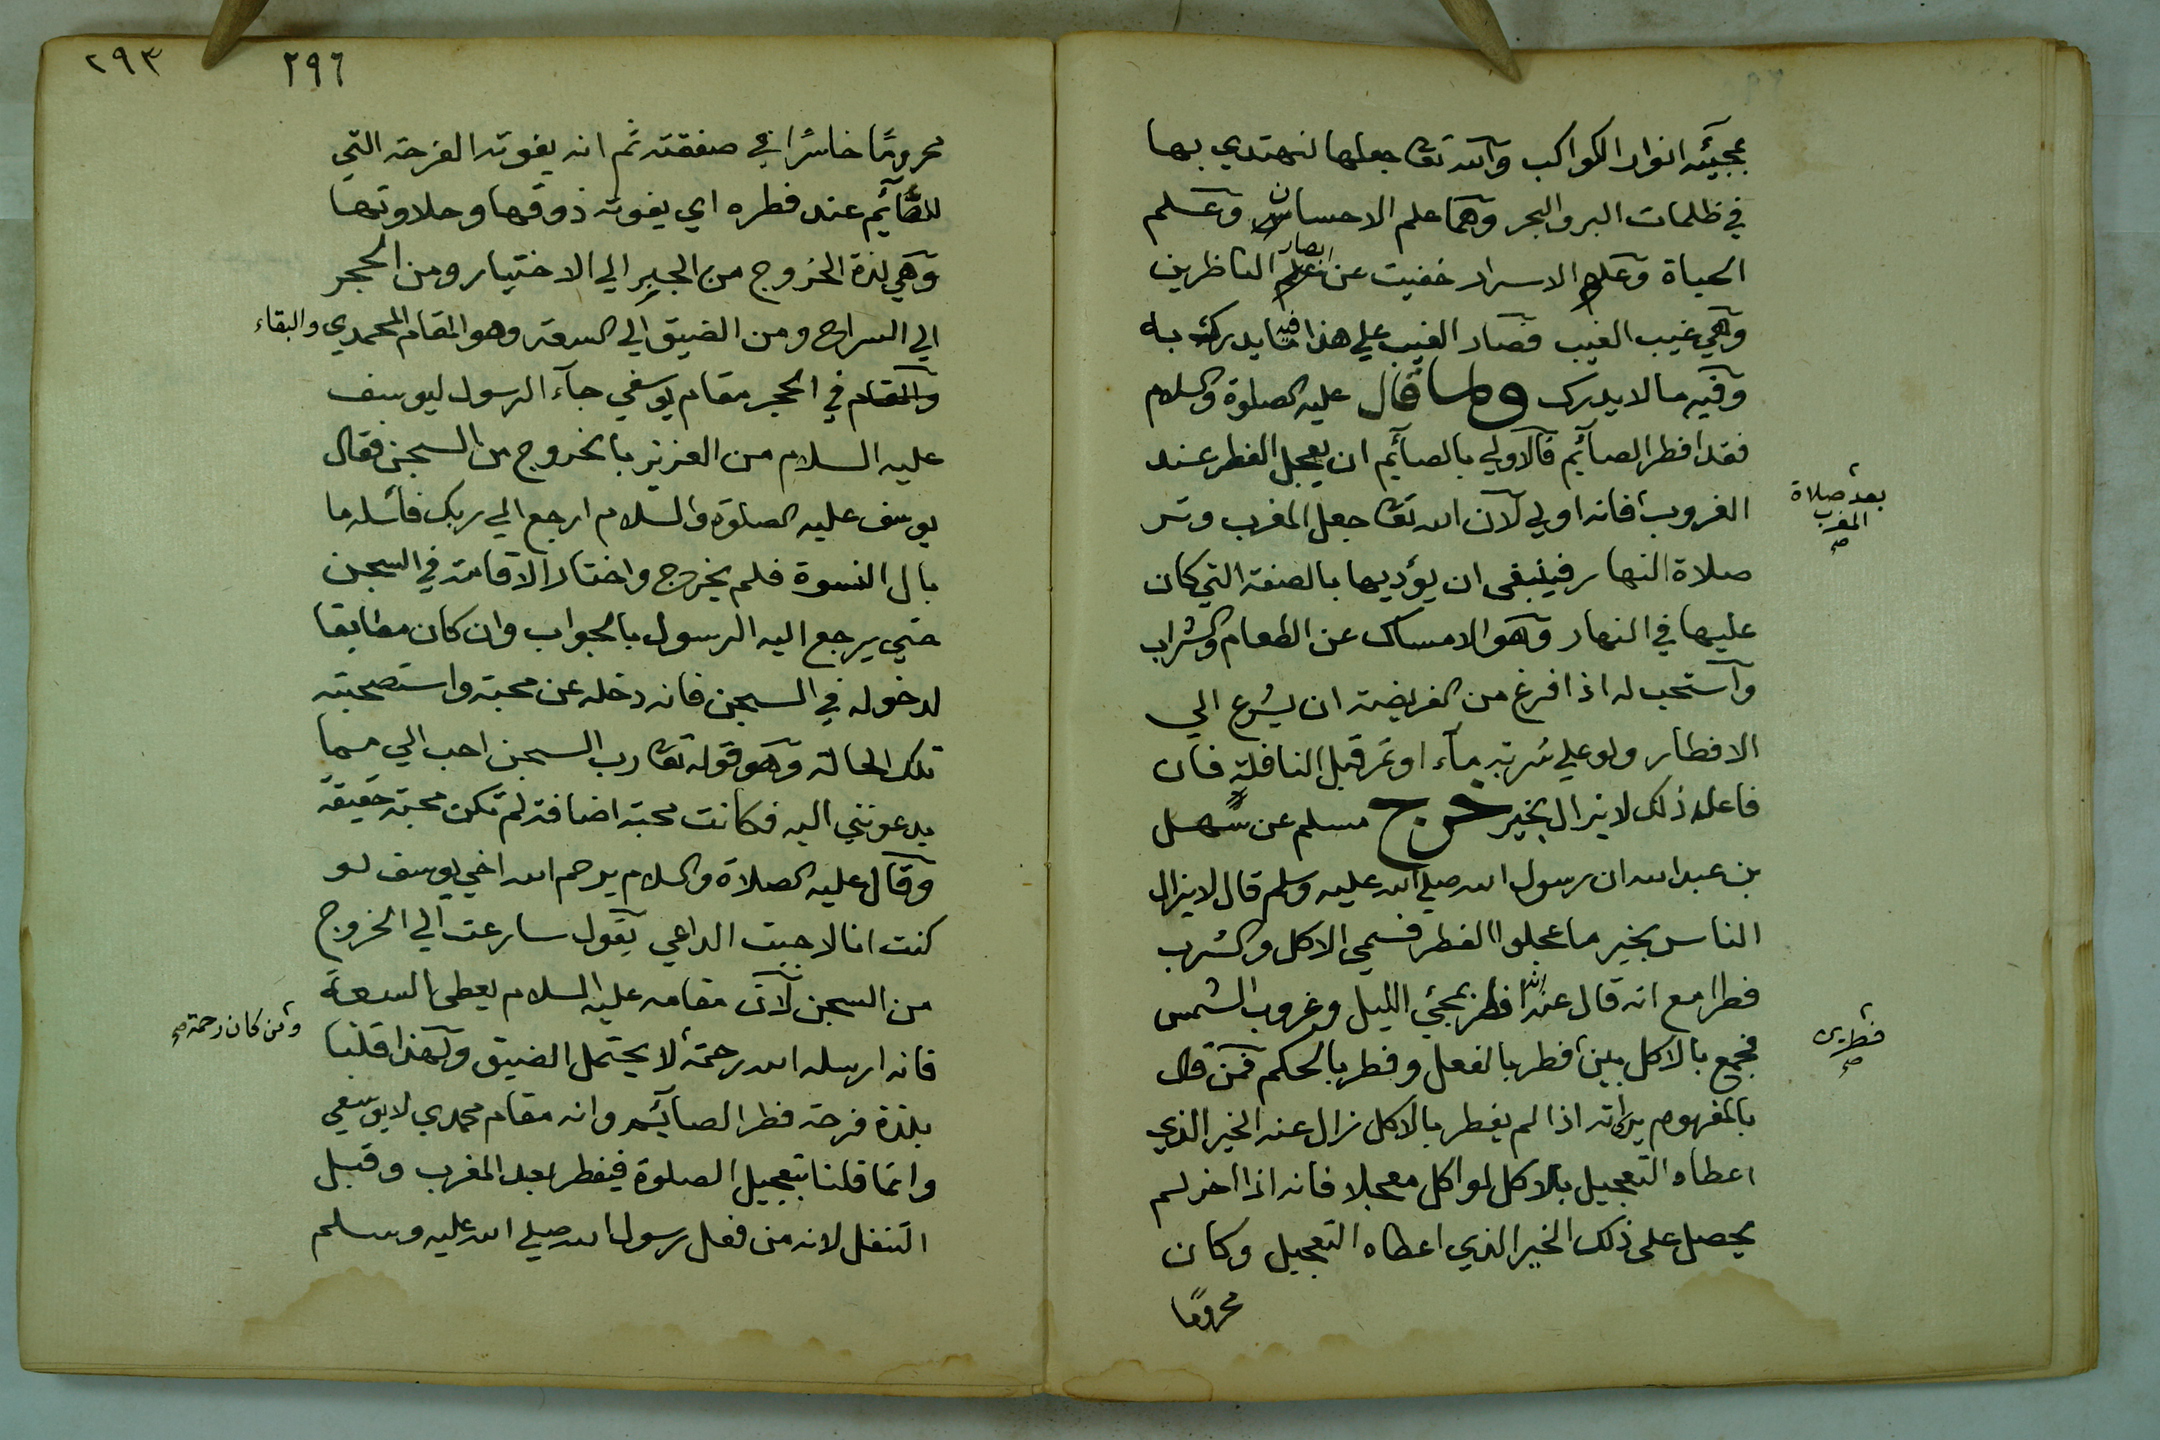 بمجيئه انوار الكواكب والله تعا جعلها لنهتدي بها
في ظلمات البر والبحر وهما علم الاحسان وعلم
الحياة وعلم الاسرار خفيت عن ابصار الناظرين
وهي غيب الغيب فصار الغيب علي هذا فيه ما يدرك به
وفيه مالا يدرك ولما قال عليه الصلوة والسلام
فقد افطر الصآئم فالاولي بالصآئم ان يعجل الفطر عند
الغروب فانه اولي لان الله تعا جعل المغرب وتر
بعد صلاة
المغرب
صح
صلاة النهار فينبغي ان يؤديها بالصفة التي كان
عليها في النهار وهو الامساك عن الطعام والشراب
واستحب له اذا فرغ من الفريضة ان يشرع الي
الافطار ولو علي شربة مآء او تمر قبل النافلة فان
فاعل ذلك لا يزال بخير خرج مسلم عن سهل
بن عبد الله ان رسول الله صلي الله عليه وسلم قال لا يزال
الناس بخير ما عجلوا الفطر فسمي الاكل والشرب
فطرا مع انه قال عنه افطر بمجئ الليل وغروب الشمس
فجمع بالاكل بين فطر بالفعل وفطر بالحكم فمن قال
فطرين
صح
بالمفهوم يرانه اذا لم يفطر بالاكل زال عنه الخير الذي
اعطاه التعجيل بالاكل لو اكل معجلا فانه اذا اخر لم
يحصل على ذلك الخير الذي اعطاه التعجيل وكان
محروما
٢٩٦
٢٩٣
محروما خاسرا في صفقته ثم انه يفوته الفرحة التي
للصآئم عند فطره اي يفوته ذوقها وحلاوتها
وهي لذة الخروج من الجبر الي الاختيار ومن الحجر
الي السراح ومن الضيق الي السعة وهو المقام المحمدي والبقاء
والمقام في الحجر مقام يوسفي جآء الرسول ليوسف
عليه السلام من العزيز بالخروج من السجن فقال
يوسف عليه الصلوة والسلام ارجع الي ربك فاسئله ما
بال النسوة فلم يخرج واختار الاقامة في السجن
حتي يرجع اليه الرسول بالجواب وان كان مطابقا
لدخوله في السجن فانه دخله عن محبة واستصحبته
تلك الحالة وهو قوله تعا رب السجن احب الي مما
يدعونني اليه فكانت محبة اضافة لم تكن محبة حقيقة
وقال عليه الصلاة والسلام يرحم الله اخي يوسف لو
كنت انا لاجبت الداعي يقول سارعت الي الخروج
من السجن لان مقامه عليه السلام يعطي السعة
فانه ارسله الله رحمة لا يحتمل الضيق ولهذا قلنا
ومن كان رحمة صح
بلذة فرحة فطر الصآئم وانه مقام محمدي لا يوسفي
وانما قلنا بتعجيل الصلوة فيفطر بعد المغرب وقبل
التنفل لانه من فعل رسول الله صلي الله عليه وسلم